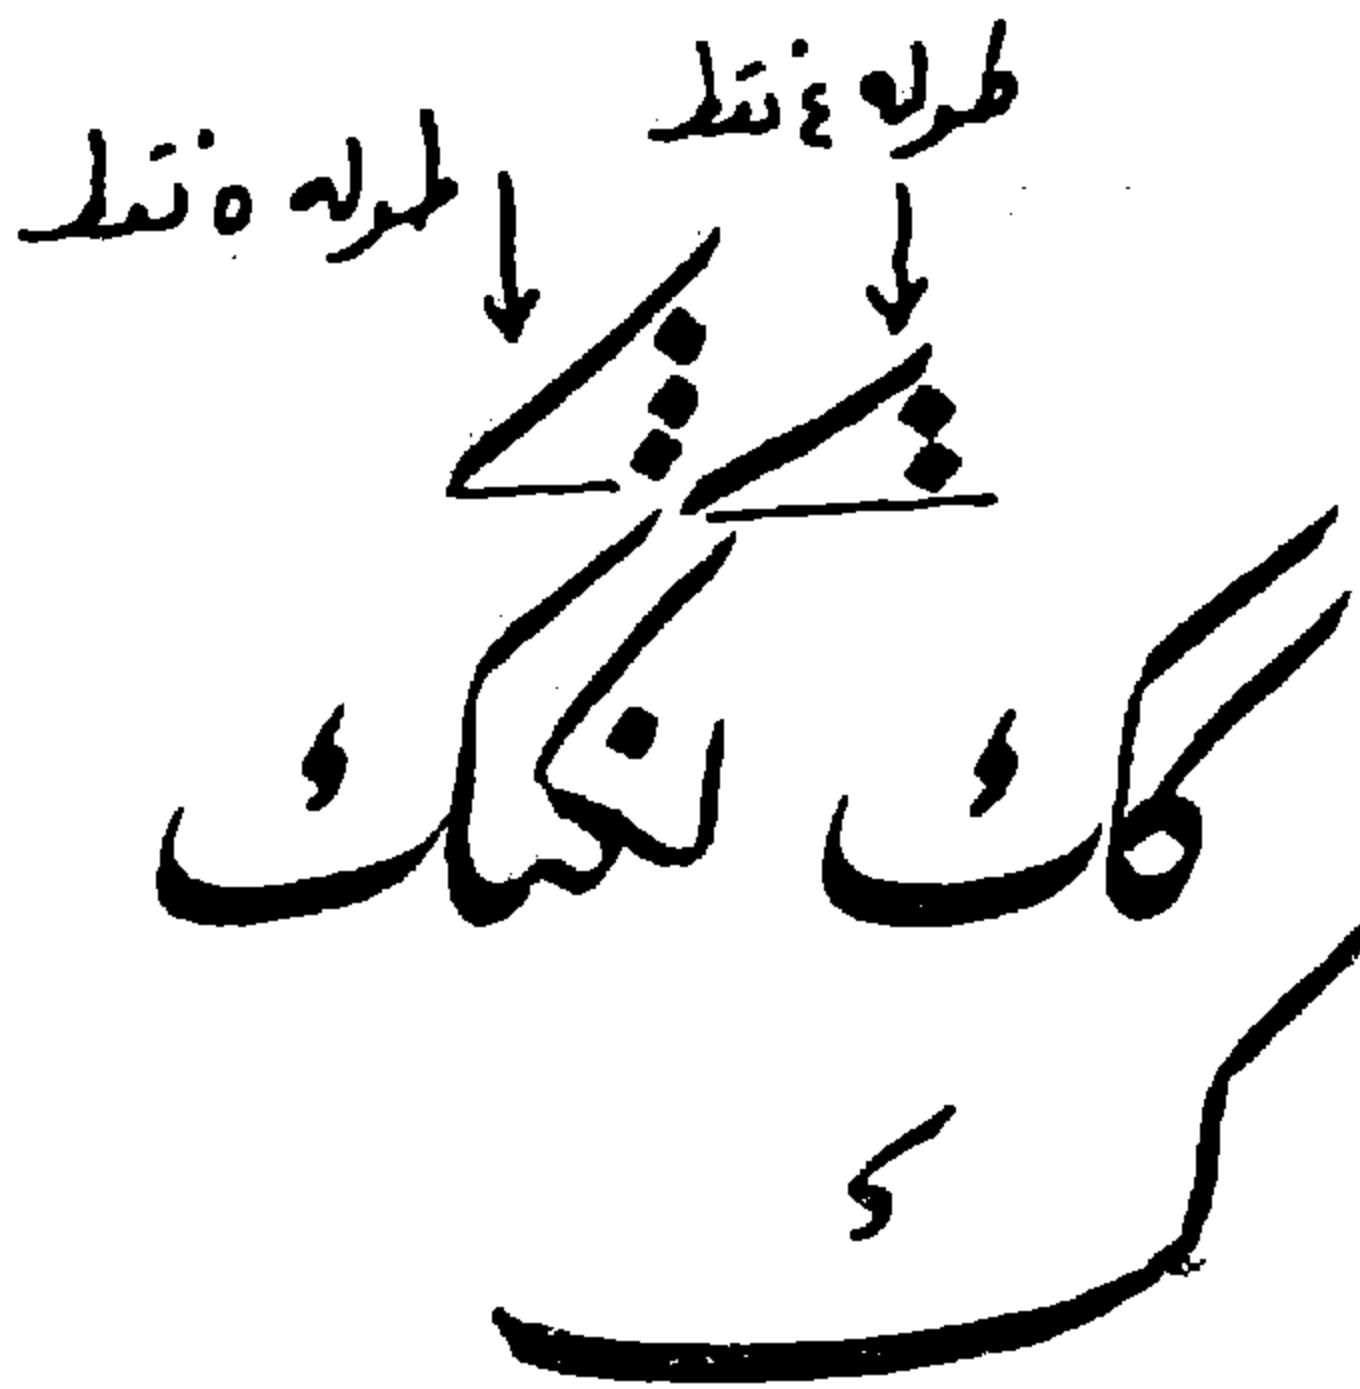 طوله ٤ نقط
طوله ٥ نقط
كك لنكك
ك